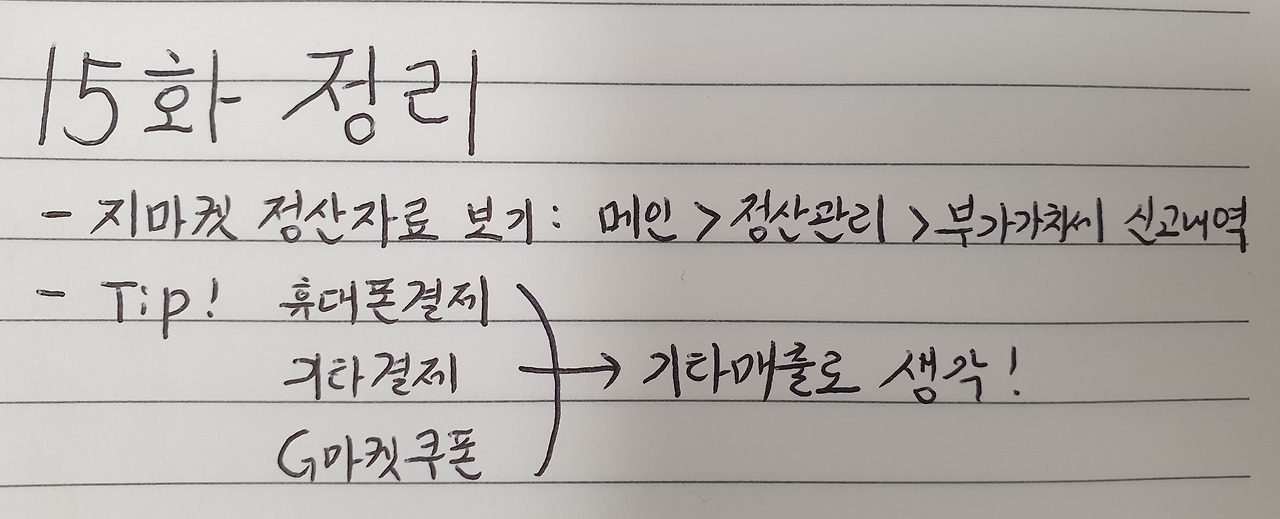 15화 정리
- 지마켓 정산자료 보기: 메인 > 정산관리 > 부가가치세 신고내역
- Tip! 휴대폰결제
기타결제 → 기타매출로 생각!
G마켓쿠폰